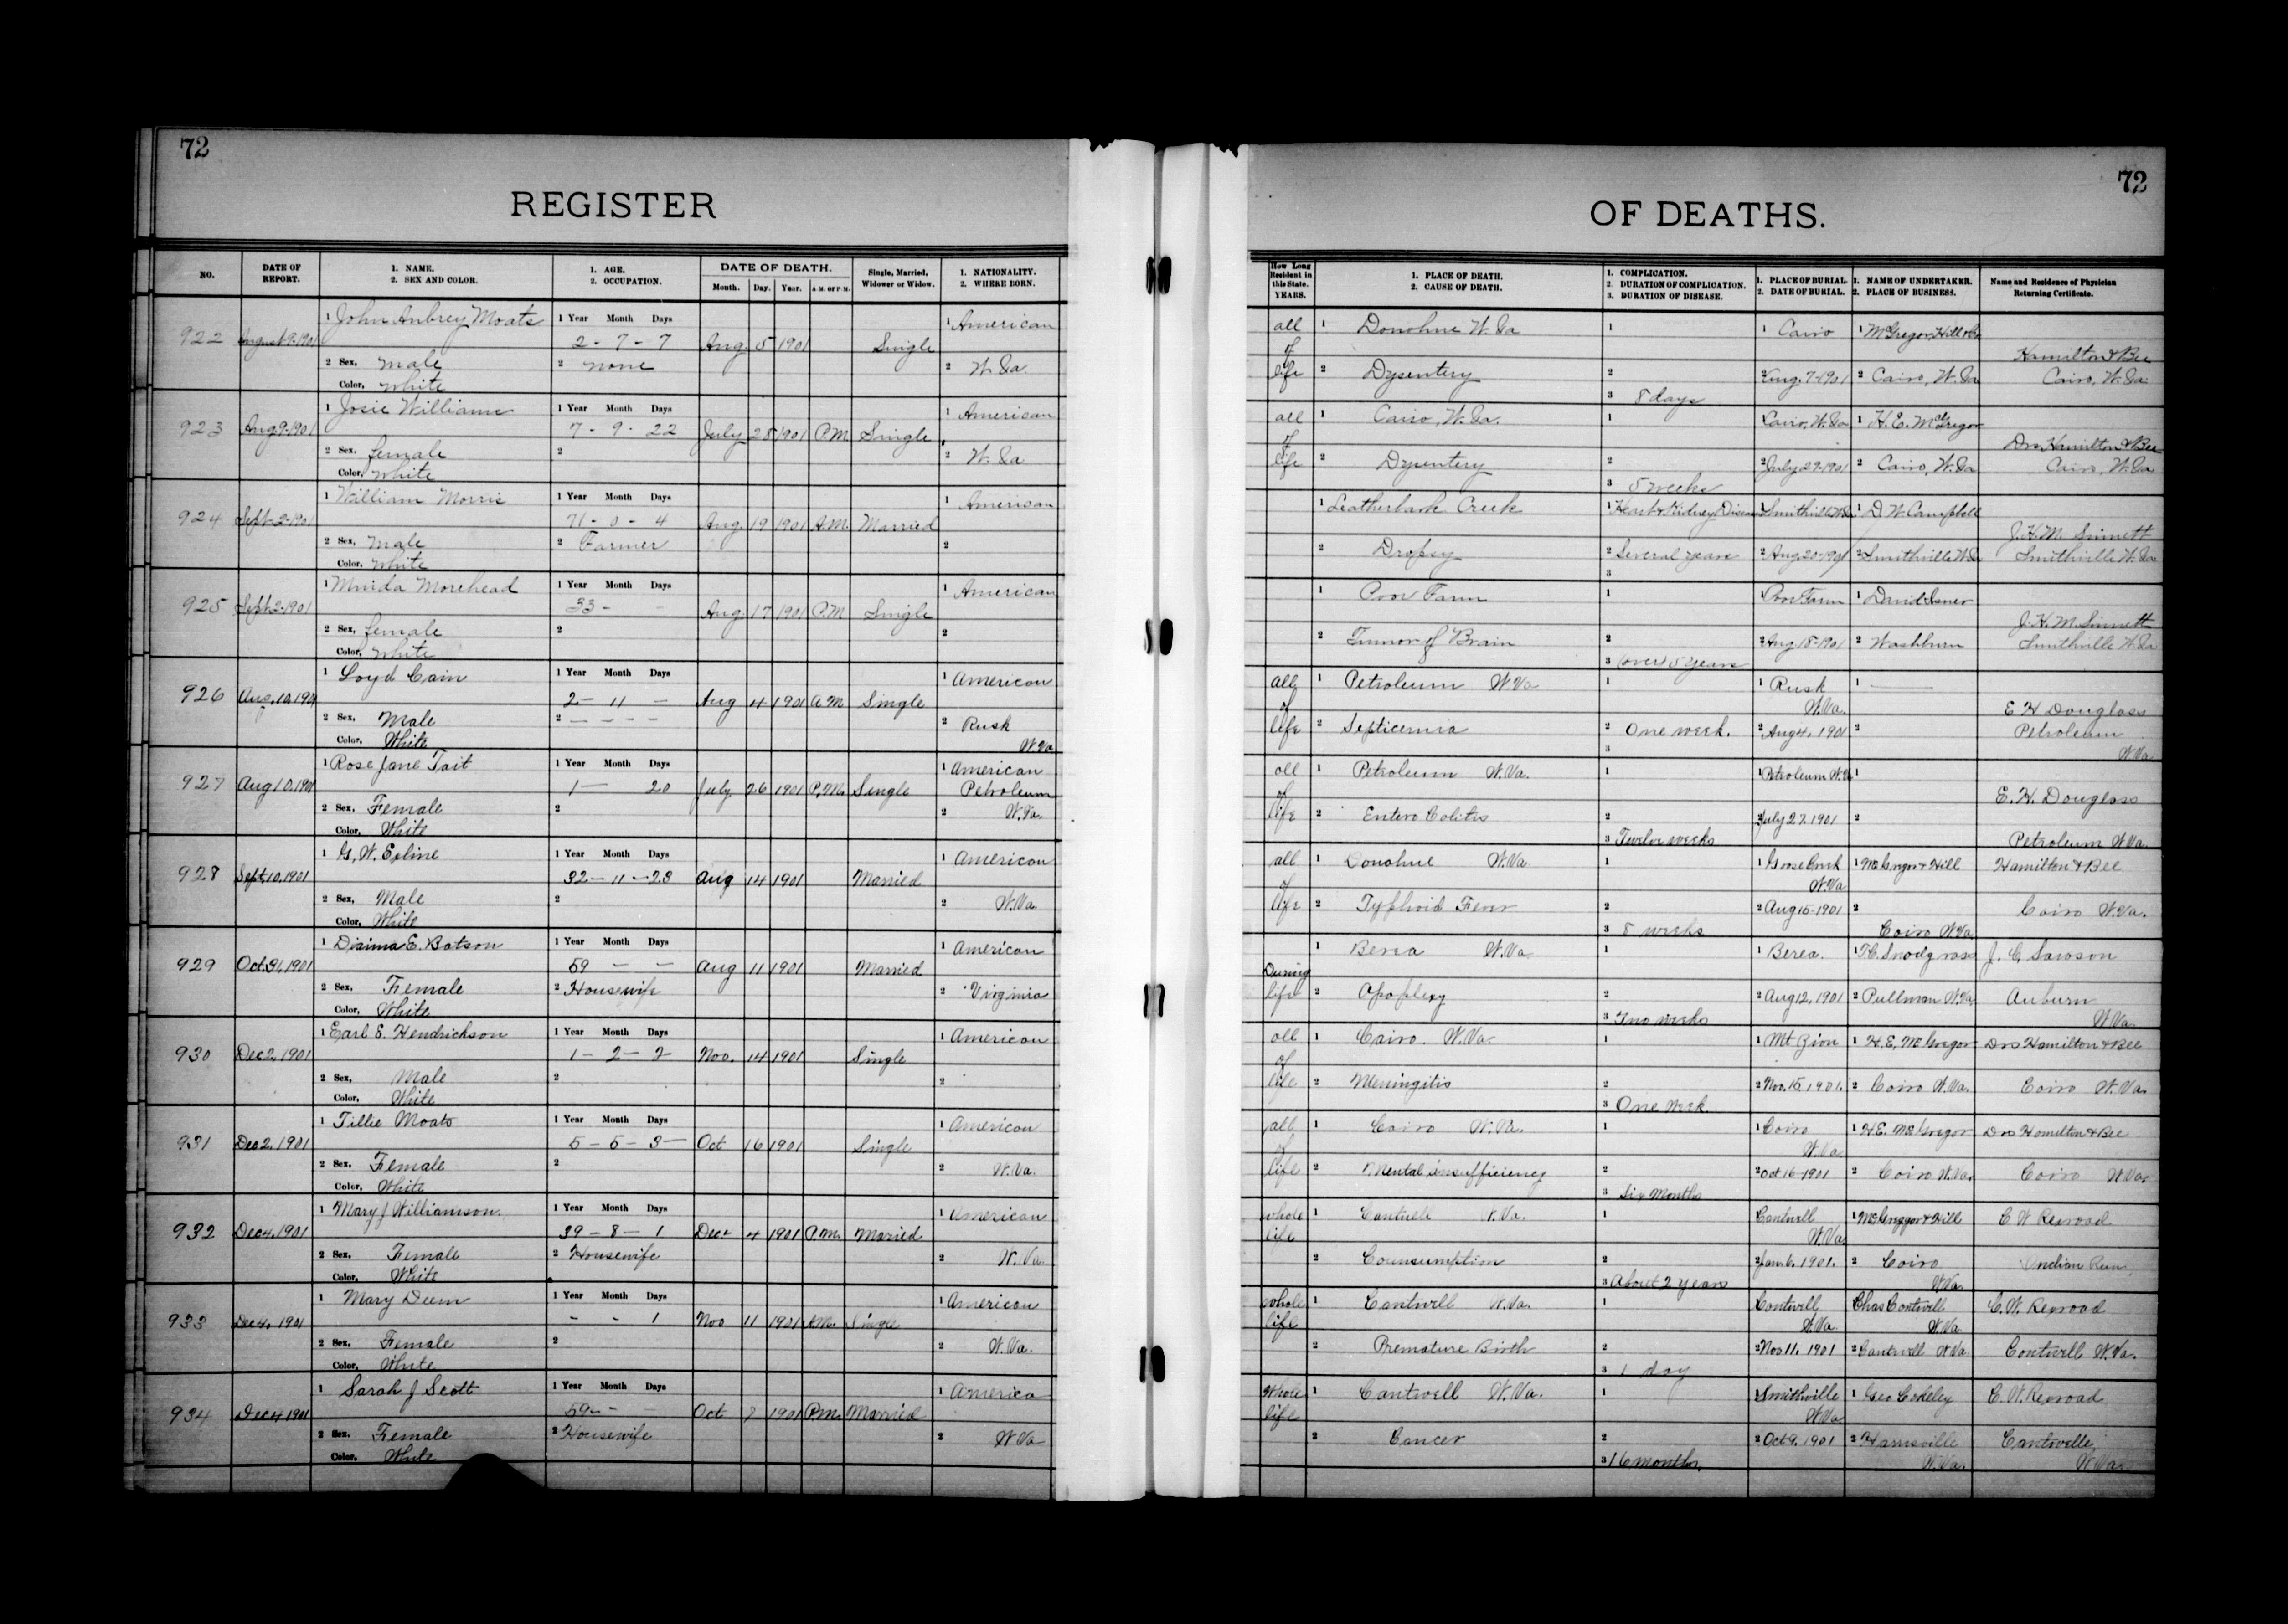 72
72
REGISTER
OF DEATHS.
NO. DATE OF REPORT. 1. NAME. 2. SEX AND COLOR. 1. AGE. 2. OCCUPATION. DATE OF DEATH. Month. Day. Year. A.M. or P.M. Single, Married, Widower or Widow. 1. NATIONALITY. 2. WHERE BORN. How Long Resident in this State. YEARS. 1. PLACE OF DEATH. 2. CAUSE OF DEATH. 1. COMPLICATION. 2. DURATION OF COMPLICATION. 3. DURATION OF DISEASE. 1. PLACE OF BURIAL. 2. DATE OF BURIAL. 1. NAME OF UNDERTAKER. 2. PLACE OF BUSINESS. Name and Residence of Physician Returning Certificate.
1 John Aubrey Moats 1 Year Month Days 1 American all 1 Donohue W. Va 1 1 Cairo 1 McGregor, Hill
922 August 9-1901 2 - 7 - 7 Aug. 5 1901 Single of Hamilton & Bee
2 Sex, male 2 none 2 W. Va. life 2 Dysentery 2 2 Aug. 7-1901 2 Cairo, W. Va Cairo, W. Va.
Color, white 3 8 days
1 Josie Williams 1 Year Month Days 1 American all 1 Cairo, W. Va. 1 1 Cairo, W. Va 1 H. E. McGregor
923 Aug 9-1901 7 - 9 - 22 July 28 1901 P.M. Single of Drs Hamilton & Bee
2 Sex, female 2 2 W. Va life 2 Dysentery 2 2 July 29-1901 2 Cairo, W. Va Cairo, W. Va
Color, white 3 5 weeks
1 William Morris 1 Year Month Days 1 American 1 Leatherbark Creek 1 Heart & Kidney Disease 1 Smithville W. Va 1 D. W. Campbell
924 Sept-2-1901 71 - 0 - 4 Aug. 19 1901 A.M. Married J. H. M. Sinnett
2 Sex, male 2 Farmer 2 2 Dropsy 2 Several years 2 Aug 20-1901 2 Smithville W. Va Smithville W. Va
Color, white 3
1 Morehead 1 Year Month Days 1 American 1 Poor Farm 1 1 Poor Farm 1 David
925 Sept-2-1901 33 - - Aug. 17 1901 P.M. Single J. H. M. Sinnett
2 Sex, female 2 2 2 Tumor of Brain 2 2 Aug 18-1901 2 Washburn Smithville W. Va
Color, white 3 (over) 5 years
1 Loyd Cain 1 Year Month Days 1 American all 1 Petroleum W. Va 1 1 Rusk W. Va. 1 —
926 Aug. 10. 1901 2 - 11 - Aug 4 1901 A M Single of E H Douglass
2 Sex, Male 2 - - - - 2 Rusk W. Va life 2 Septicemia 2 One week. 2 Aug 4, 1901 2 Petroleum W. Va
Color, White 3
1 Rose Jane Tait 1 Year Month Days 1 American all 1 Petroleum W. Va. 1 1 Petroleum W. Va 1
927 Aug 10. 1901 1 - 20 July 26 1901 P.M. Single Petroleum of E. H. Douglass
2 Sex, Female 2 2 W. Va. life 2 Entero Colitis 2 2 July 27. 1901 2
Color, White 3 Twelve weeks Petroleum W. Va.
1 G. W. Exline 1 Year Month Days 1 American all 1 Donohue W. Va 1 1 Goose Creek W. Va 1 McGregor & Hill Hamilton & Bee
928 Sept. 10. 1901 32 - 11 - 23 Aug 14 1901 Married of
2 Sex, Male 2 2 W. Va. life 2 Typhoid Fever 2 2 Aug 15-1901 2 Cairo W. Va.
Color, White 3 8 weeks Cairo W. Va.
1 E. Batson 1 Year Month Days 1 American 1 Berea W. Va 1 1 Berea. 1 Snodgrass J. C.
929 Oct. 31, 1901 59 - - Aug 11 1901 Married During
2 Sex, Female 2 Housewife 2 Virginia life 2 Apoplexy 2 2 Aug 12, 1901 2 Pullman W. Va Auburn
Color, White 3 Two weeks W. Va.
1 Earl E. Hendrickson 1 Year Month Days 1 American all 1 Cairo. W. Va. 1 1 Mt Zion 1 H. E. McGregor Drs Hamilton & Bee
930 Dec 2, 1901 1 - 2 - 2 Nov. 14 1901 Single of
2 Sex, Male 2 2 life 2 Meningitis 2 2 Nov. 15 1901. 2 Cairo W. Va. Cairo W. Va.
Color, White 3 One Week.
1 Tillie Moats 1 Year Month Days 1 American all 1 Cairo W. Va. 1 1 Cairo W. Va. 1 H. E. McGregor Drs Hamilton & Bee
931 Dec 2. 1901 5 - 5 - 3 - Oct 16 1901 Single of
2 Sex, Female 2 2 W. Va. life 2 insufficiency 2 2 Oct 16-1901 2 Cairo W. Va. Cairo W. Va.
Color, White 3 Six Months
1 Mary J Williamson. 1 Year Month Days 1 American whole 1 Cantwell W. Va. 1 Cantwell W. Va. 1 McGreggor & Hill C W Rexroad
932 Dec 4, 1901 39 - 8 - 1 Dec 4 1901 P.M. Married life
2 Sex, Female 2 Housewife 2 W. Va. 2 Counsumption 2 2 Jan. 6. 1901. 2 Cairo W. Va. Indian Run
Color, White 3 About 2 years
1 Mary Deem 1 Year Month Days 1 American whole 1 Cantwell W. Va. 1 Cantwell W. Va. Chas Cantwell W. Va C. W. Rexroad
933 Dec 4, 1901 - - 1 Nov 11 1901 A.M. Single life
2 Sex, Female 2 2 W. Va. 2 Premature Birth 2 2 Nov 11. 1901 2 Cantwell W. Va Cantwell W. Va.
Color, White 3 1 day
1 Sarah J Scott 1 Year Month Days 1 America Whole 1 Cantwell W. Va. 1 1 Smithville W. Va 1 Geo Cokeley C. W. Rexroad
934 Dec 4 1901 59 - - Oct 1901 P.M. Married life
2 Sex, Female 2 Housewife 2 W Va 2 Cancer 2 2 Oct 9. 1901 2 Harrisville W. Va. Cantwell W. Va.
Color, White 3 16 months.